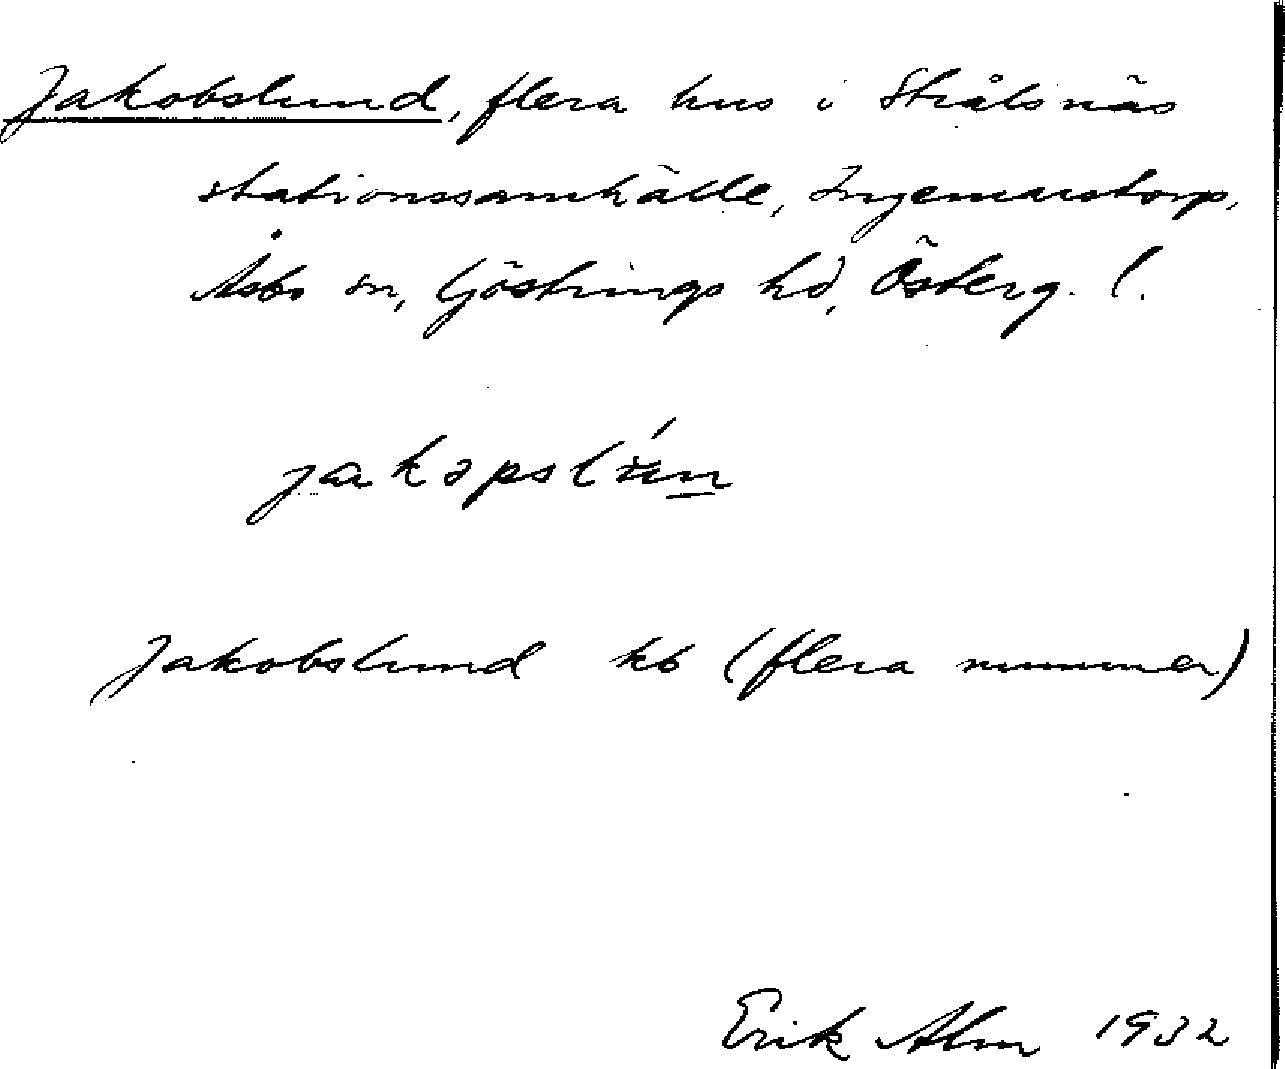 Jakobslund, flera hus i Strålsnäs
stationssamhälle, Ingemarstorp,
Åsbo sn, Göstrings hd, Österg. l.
Jakobslund kb (flera nummer)
Erik Alm 1932